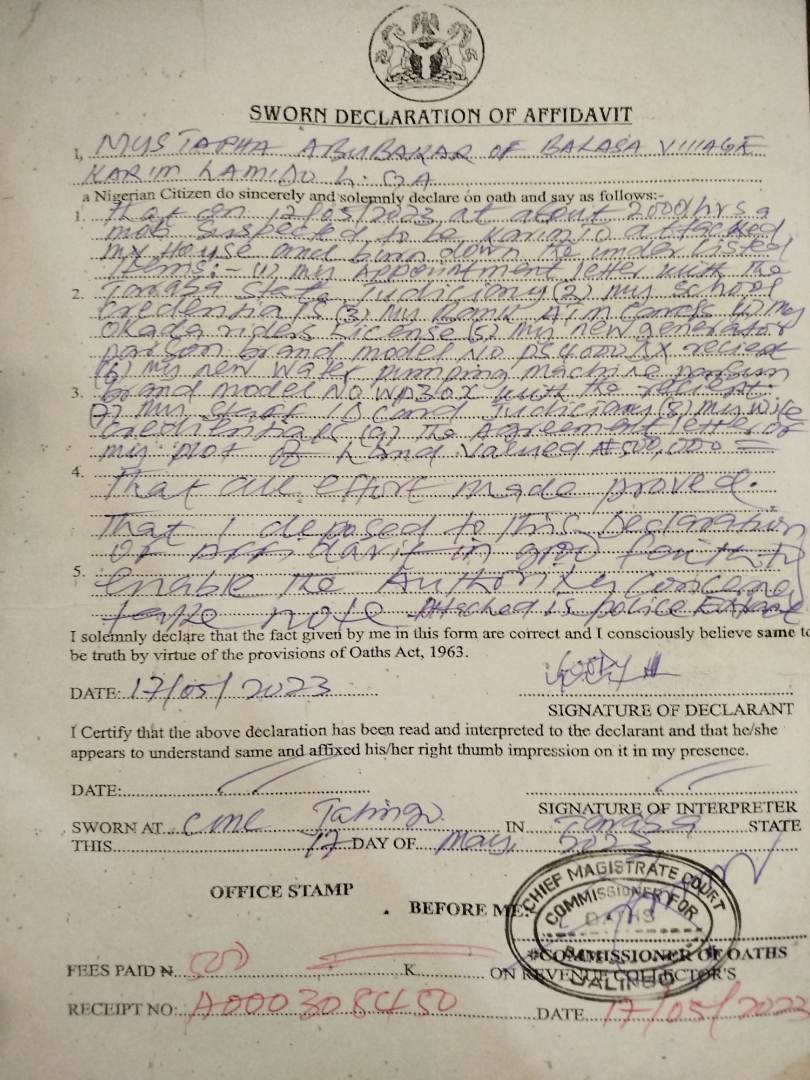 SWORN DECLARATION OF AFFIDAVIT
I, MUSTAPHA ABUBAKAR OF BALASA VILLAGE
KARIM LAMIDO L. GA
a Nigerian Citizen do sincerely and solemnly declare on oath and say as follows:-
1. That on 12/05/2023 at about 2000hrs a
mob suspected to be Karimjo attacked
my House and burn down the under listed
Items:- (1) my Appointment letter with the
2. Taraba State Judiciary (2) my school
credentials (3) my Bank ATM Cards (4) my
Okada riders License (5) my new generator
brand model NO reciept
(6) my new water pumping machine
3. brand model NO WP30X with the reciept.
(7) my staff ID card Judiciary (8) my wife
credientials (9) The Agreement letter of
my plot of Land valued ₦500,000 =
4. That all effort made proved.
That I deposed to this Declaration
of Affidavit in good faith to
5. enable the Authority concerne
take note Attached is police Extract
I solemnly declare that the fact given by me in this form are correct and I consciously believe same to
be truth by virtue of the provisions of Oaths Act, 1963.
DATE: 17/05/2023
SIGNATURE OF DECLARANT
I Certify that the above declaration has been read and interpreted to the declarant and that he/she
appears to understand same and affixed his/her right thumb impression on it in my presence.
DATE:
SIGNATURE OF INTERPRETER
SWORN AT CMC Jalingo IN Taraba STATE
THIS 17 DAY OF May, 2023
OFFICE STAMP
BEFORE ME:
CHIEF MAGISTRATE COURT
COMMISSIONER FOR
OATHS
JALINGO
COMMISSIONER OF OATHS
FEES PAID ₦ 500 = K ON REVENUE COLLECTOR'S
RECEIPT NO: A0003084450 DATE 17/05/2023